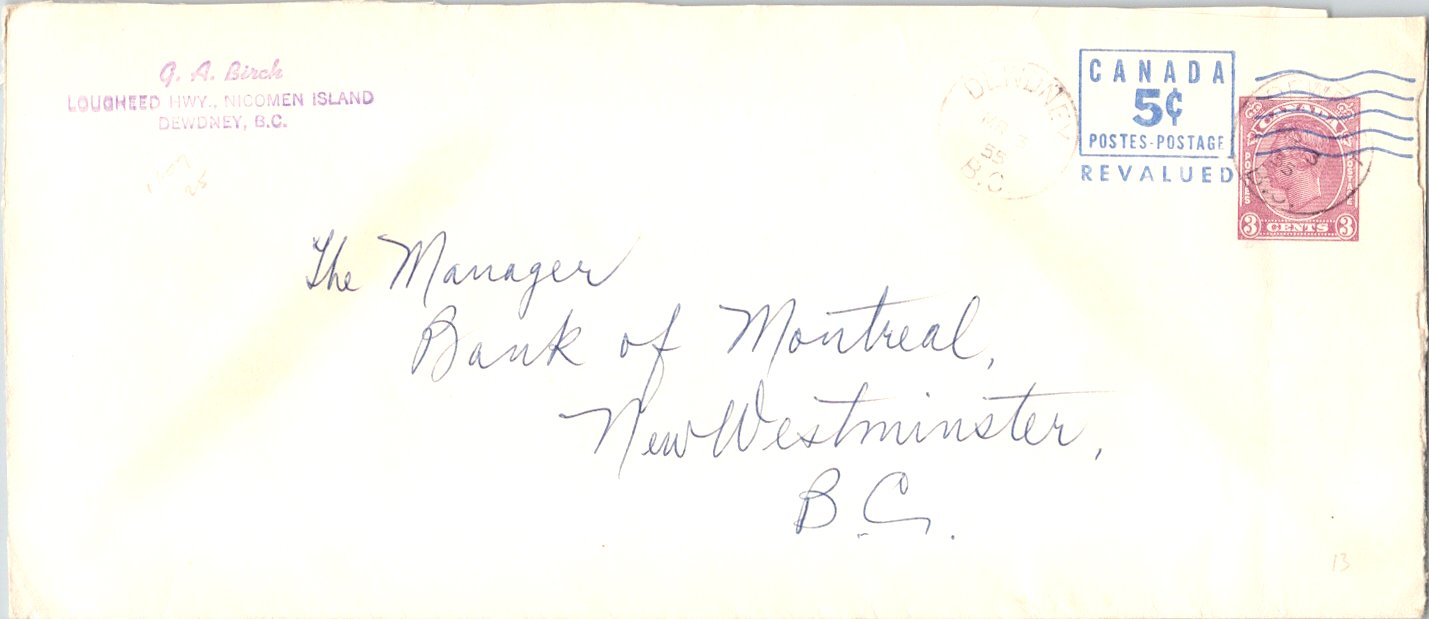 G. A. Birch
LOUGHEED HWY., NICOMEN ISLAND
DEWDNEY, B.C.
DEWDNEY
55
B.C.
CANADA
5¢
POSTES-POSTAGE
REVALUED
CANADA
POSTES
POSTAGE
3 CENTS 3
The Manager
Bank of Montreal,
New Westminster,
B.C.
13